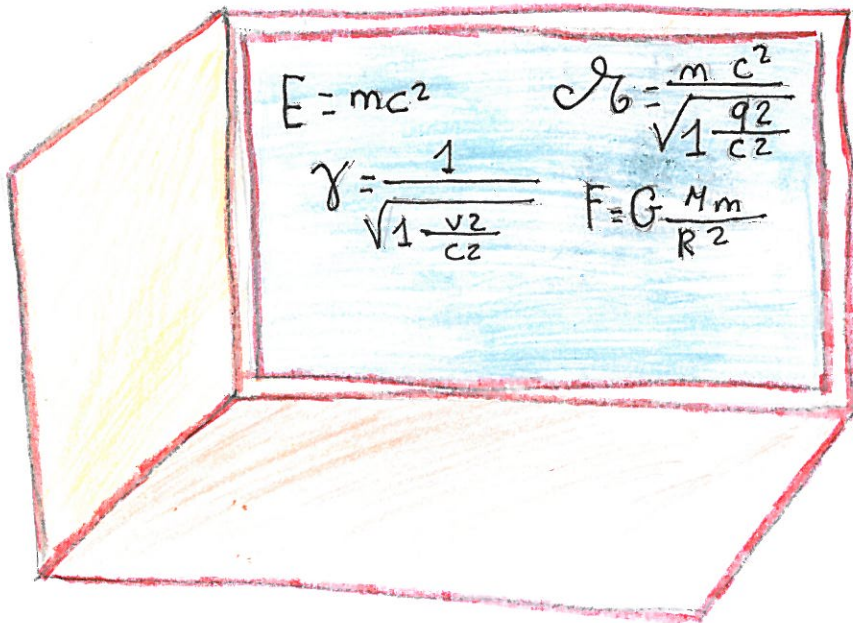 E = mc²
𝓗 = m c² / √1 q2/c2
γ = 1 / √1 v2/c2
F = G Mm / R²